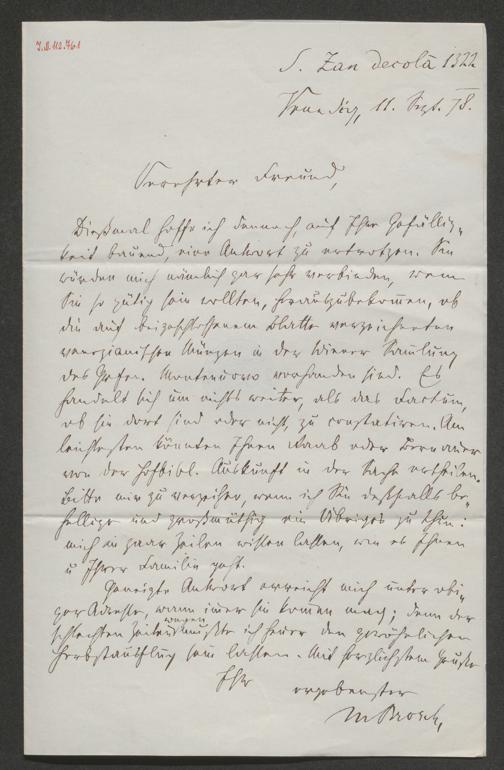 I.N. 112.761
S. Zan decolà 1322
Venedig, 11. Sept. 78.
Verehrter Freund,
Dießmal hoffe ich dennoch, auf Ihre Gefällig-
keit bauend, eine Antwort zu ertrotzen. Sie
würden mich nämlich gar sehr verbinden, wenn
Sie so gütig sein wollten, herauszubekommen, ob
die auf beigeschlossenem Blatte verzeichneten
venezianischen Münzen in der Wiener Sammlung
des Grfen. Montenuovo vorhanden sind. Es
handelt sich um nichts weiter, als das Factum,
ob sie dort sind oder nicht, zu constatiren. Am
leichtesten könnten Ihnen Raab oder
von der Hofbibl. Auskunft in der Sache ertheilen.
Bitte mir zu verzeihen, wenn ich Sie deßfalls be-
hellige und großmüthig ein Übriges zu thun:
mich in paar Zeilen wissen lassen, wie es Ihnen
u Ihrer Familie geht.
Geneigte Antwort erreicht mich unter obi-
ger Adresse, wann immer sie kommen mag; denn der
schlechten Zeiten wegen mußte ich heuer den gewöhnlichen
Herbstausflug sein lassen. Mit herzlichstem Gruße
Ihr
ergebenster
M Brosch,